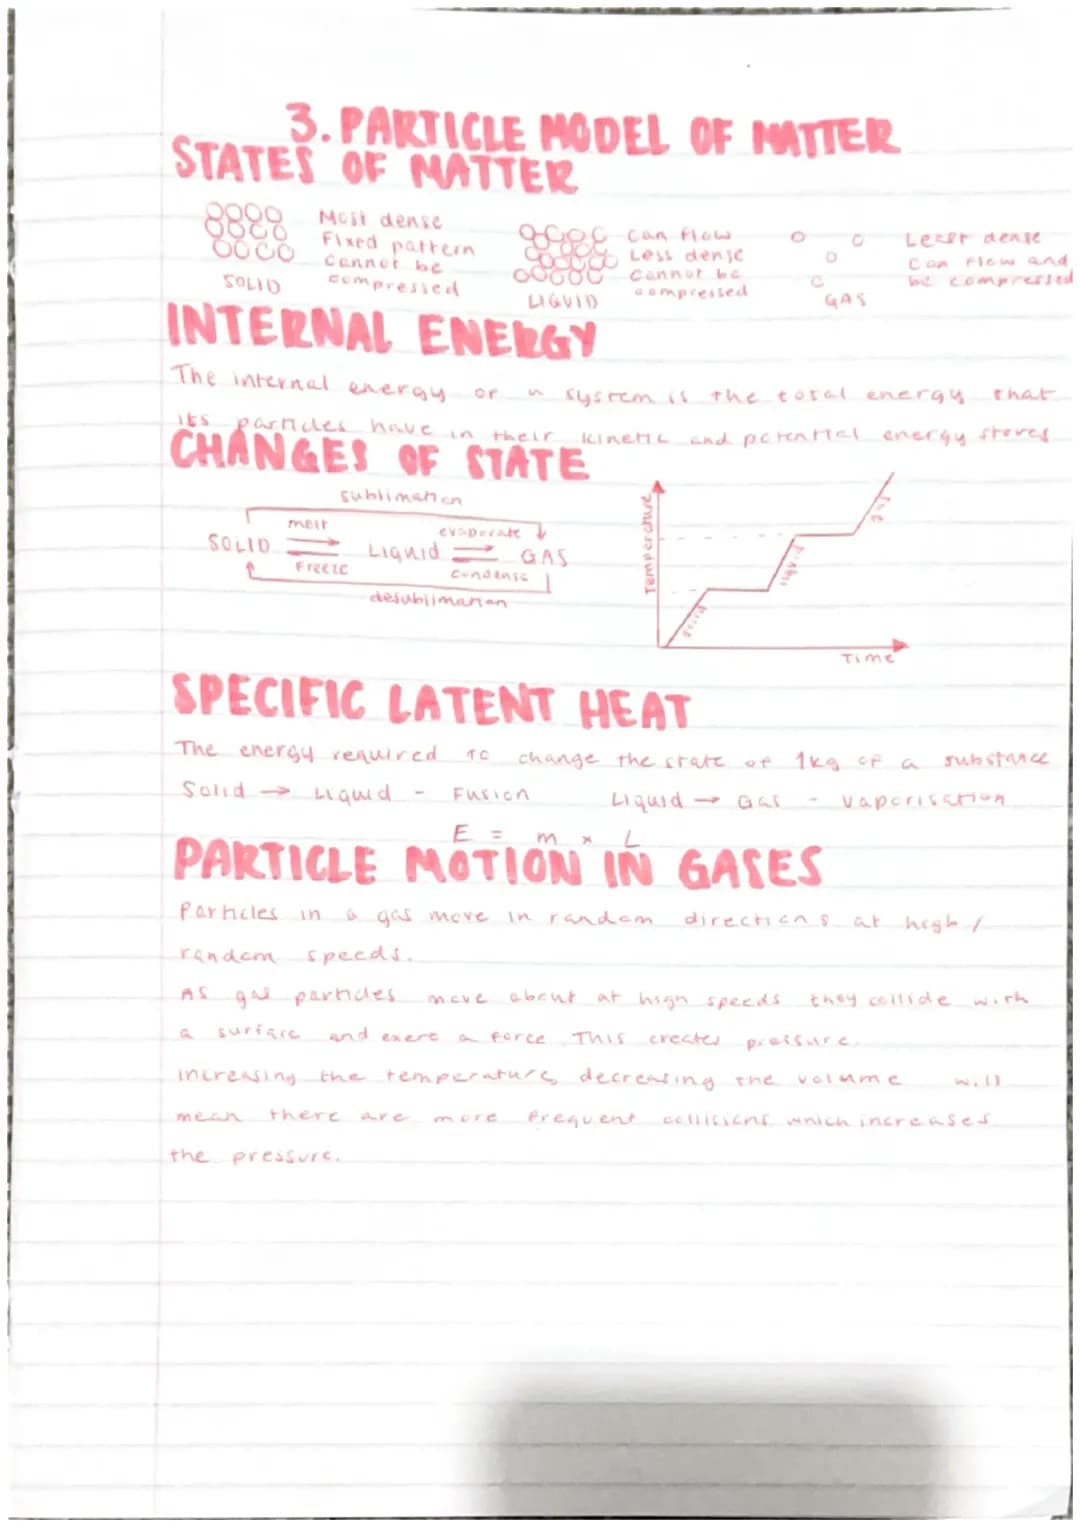 3. PARTICLE MODEL OF MATTER
STATES OF MATTER
Most dense
Fixed pattern
Cannot be
compressed
SOLID
Can flow
Less dense
Cannot be
compressed
LIQUID
Least dense
Can flow and
be compressed
GAS
INTERNAL ENERGY
The internal energy of a system is the total energy that
its particles have in their kinetic and potential energy stores
CHANGES OF STATE
sublimation
melt
evaporate
SOLID
Liquid
GAS
Freeze
Condense
desublimation
Temperature
solid
liquid
gas
Time
SPECIFIC LATENT HEAT
The energy required to change the state of 1kg of a substance
Solid → Liquid - Fusion Liquid → Gas - Vaporisation
E = m × L
PARTICLE MOTION IN GASES
Particles in a gas move in random directions at high /
random speeds.
As gas particles move about at high speeds they collide with
a surface and exert a force. This creates pressure.
increasing the temperature, decreasing the volume will
mean there are more frequent collisions which increases
the pressure.